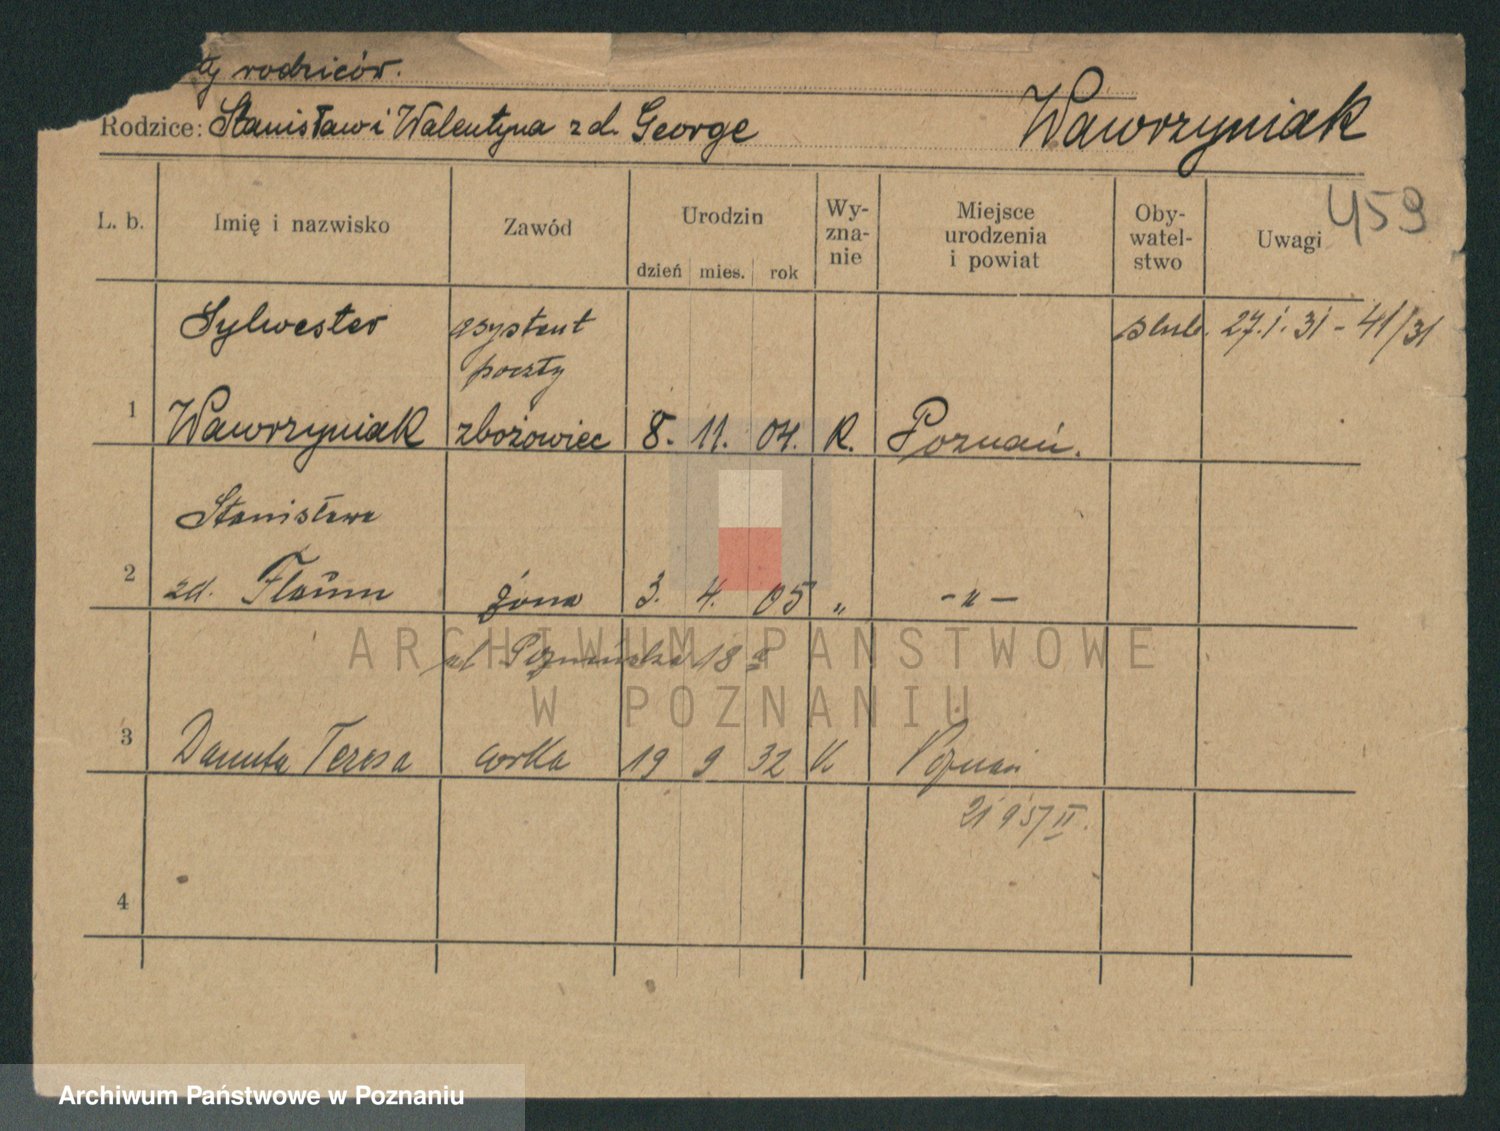 rodziców.
Rodzice: Stanisław i Walentyna z d. George Wawrzyniak
459
L. b. Imię i nazwisko Zawód Urodzin Wy-zna-nie Miejsce urodzenia i powiat Oby-watel-stwo Uwagi
dzień mies. rok
Sylwester asystent ślub. 27.1.31 - 41/31
poczty
1 Wawrzyniak zbożowiec 8. 11. 04. K. Poznań.
Stanisława
2 zd. Flaum żona 3. 4. 05 „ -„-
ul 18
3 Danuta Teresa córka 19 9 32 K Poznań
21 9 57 II.
4
ARCHIWUM PAŃSTWOWE
W POZNANIU
Archiwum Państwowe w Poznaniu